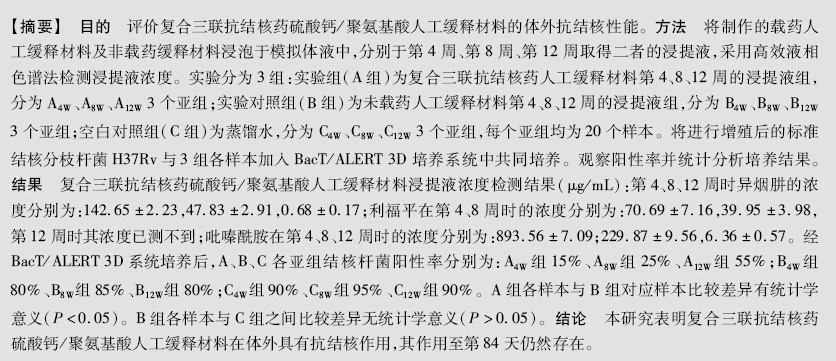 【摘要】 目的 评价复合三联抗结核药硫酸钙/聚氨基酸人工缓释材料的体外抗结核性能。方法 将制作的载药人
工缓释材料及非载药缓释材料浸泡于模拟体液中,分别于第 4 周、第 8 周、第 12 周取得二者的浸提液,采用高效液相
色谱法检测浸提液浓度。实验分为 3 组:实验组(A 组)为复合三联抗结核药人工缓释材料第 4、8、12 周的浸提液组,
分为 A4W、A8W、A12W 3 个亚组;实验对照组(B 组)为未载药人工缓释材料第 4、8、12 周的浸提液组,分为 B4W、B8W、B12W
3 个亚组;空白对照组(C 组)为蒸馏水,分为 C4W、C8W、C12W 3 个亚组,每个亚组均为 20 个样本。将进行增殖后的标准
结核分枝杆菌 H37Rv 与 3 组各样本加入 BacT/ALERT 3D 培养系统中共同培养。观察阳性率并统计分析培养结果。
结果 复合三联抗结核药硫酸钙/聚氨基酸人工缓释材料浸提液浓度检测结果(μg/mL):第 4、8、12 周时异烟肼的浓
度分别为:142.65±2.23,47.83±2.91,0.68±0.17;利福平在第 4、8 周时的浓度分别为:70.69±7.16,39.95±3.98,
第 12 周时其浓度已测不到;吡嗪酰胺在第 4、8、12 周时的浓度分别为:893.56±7.09;229.87±9.56,6.36±0.57。经
BacT/ALERT 3D 系统培养后,A、B、C 各亚组结核杆菌阳性率分别为:A4W组 15%、A8W组 25%、A12W组 55%;B4W组
80%、B8W组 85%、B12W组 80%;C4W组 90%、C8W组 95%、C12W组 90%。A 组各样本与 B 组对应样本比较差异有统计学
意义(P<0.05)。B 组各样本与 C 组之间比较差异无统计学意义(P>0.05)。结论 本研究表明复合三联抗结核药
硫酸钙/聚氨基酸人工缓释材料在体外具有抗结核作用,其作用至第 84 天仍然存在。